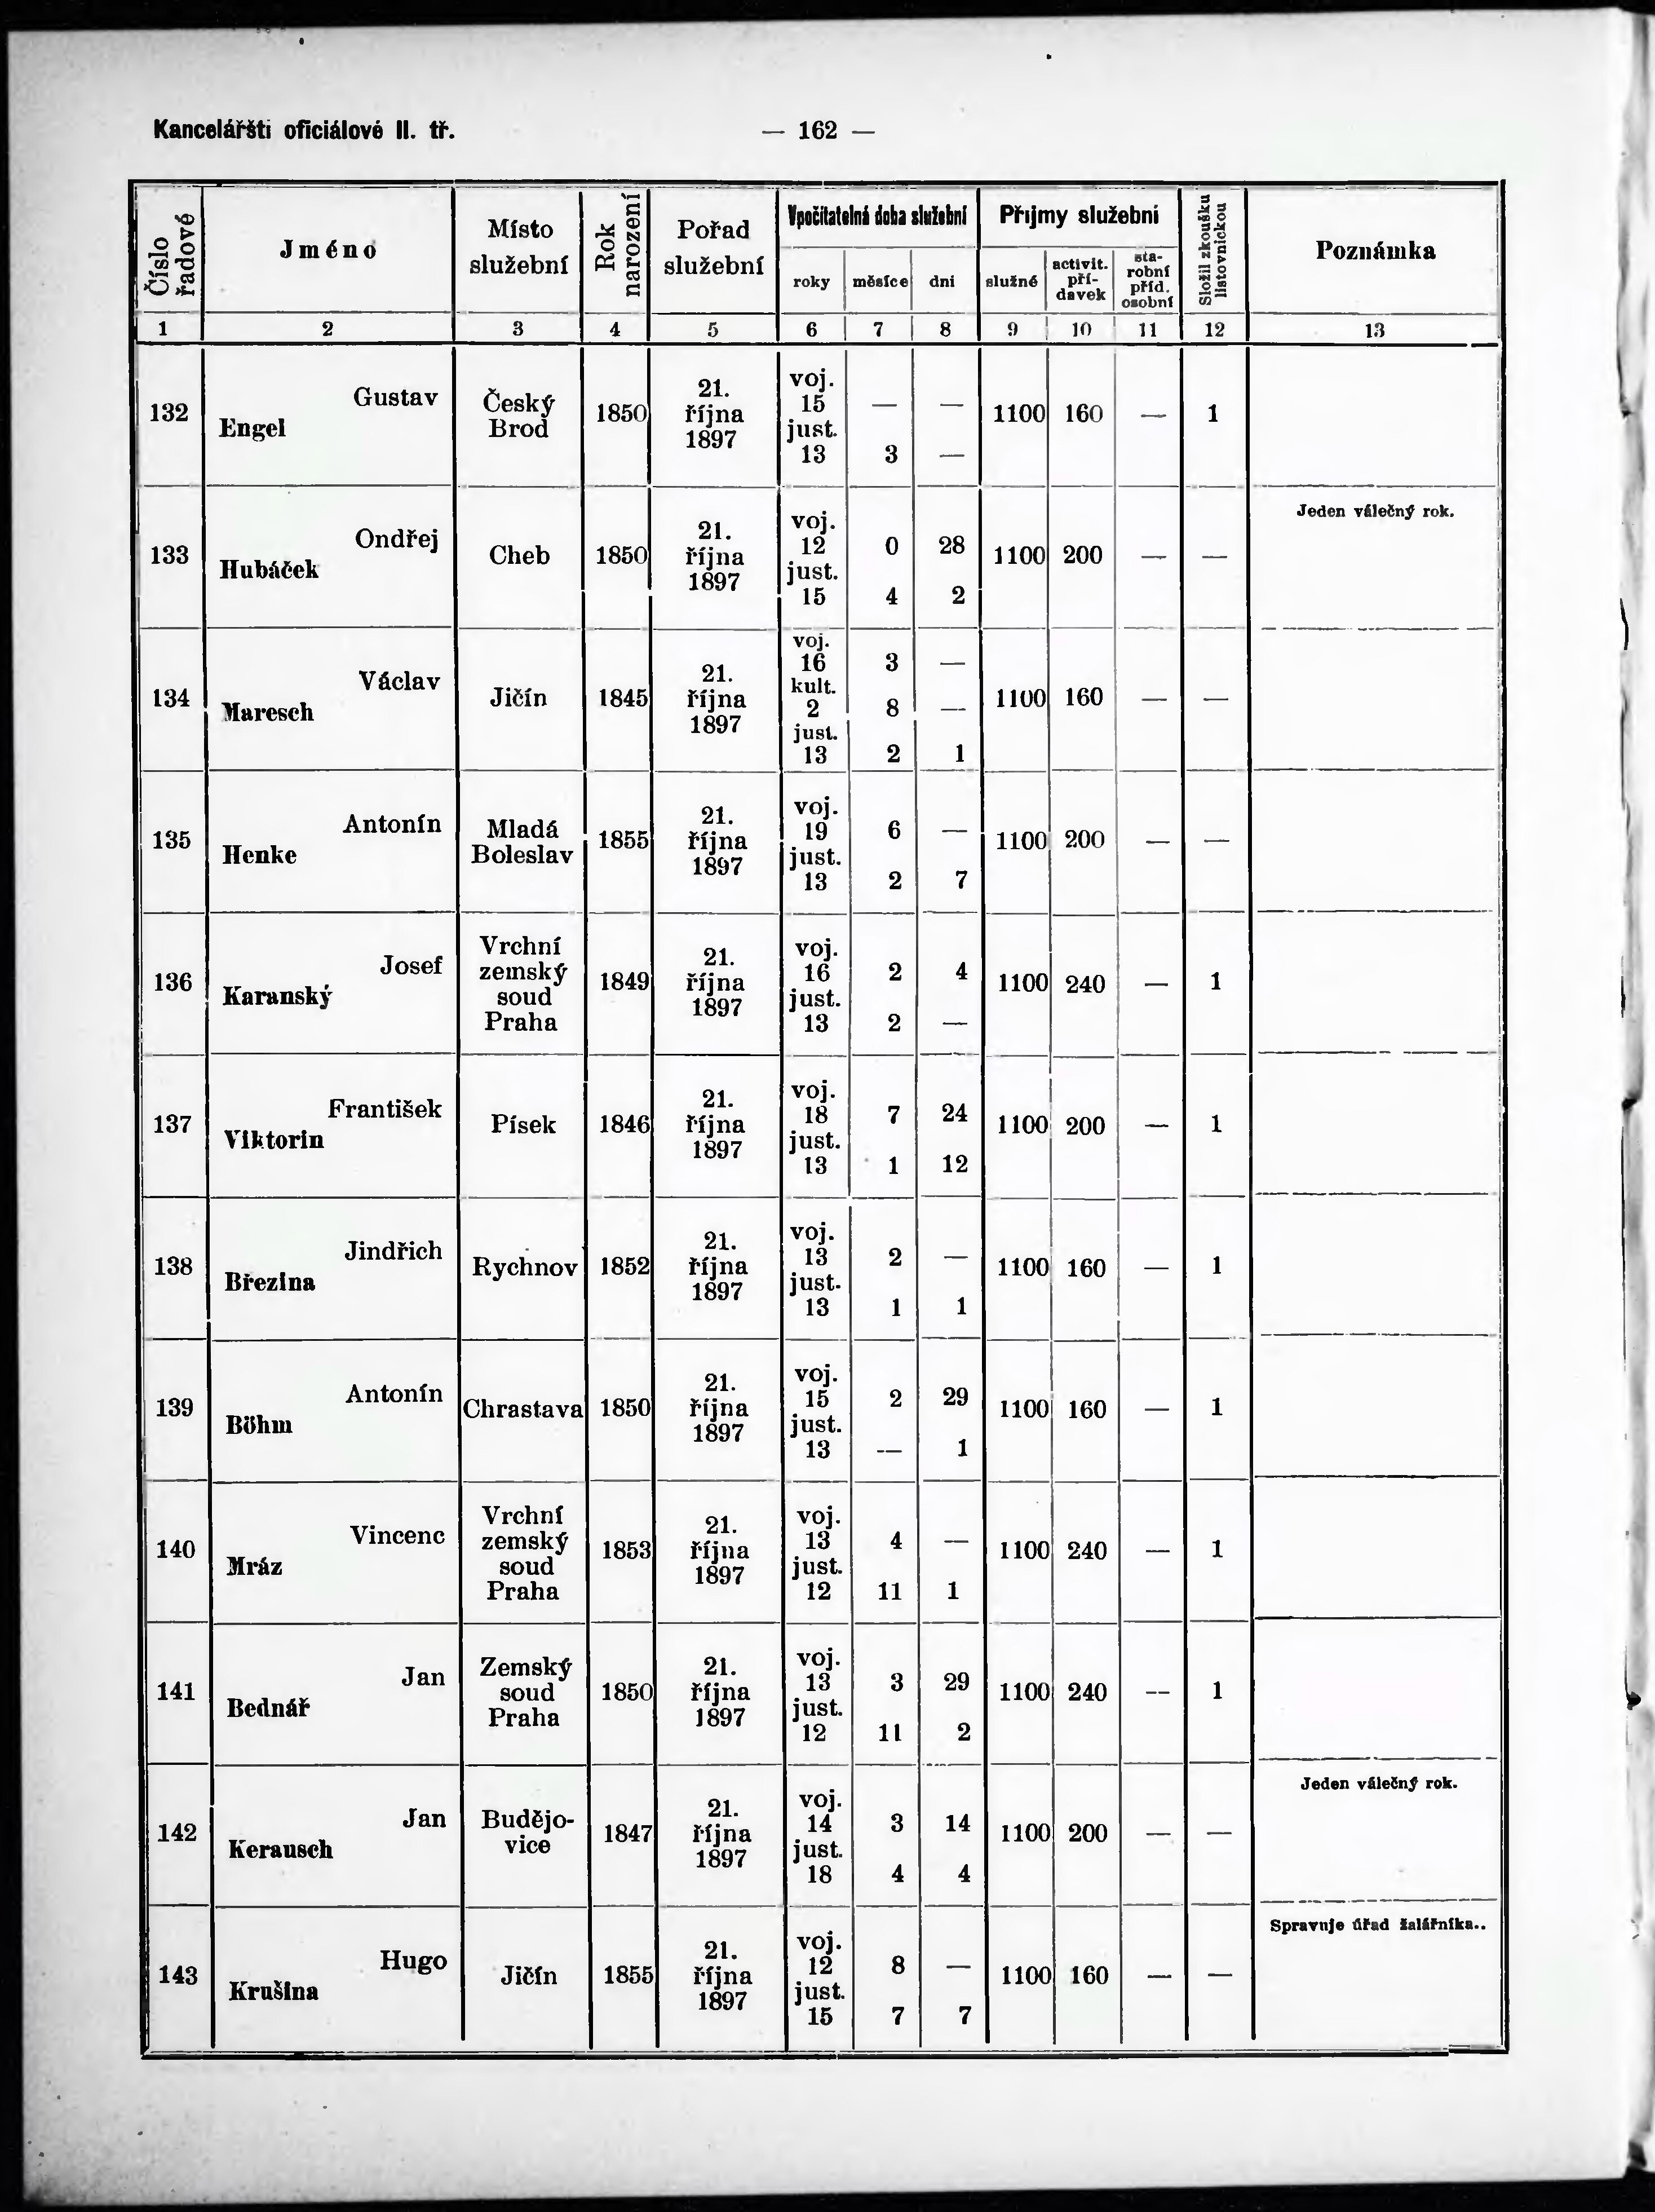 Kancelářšti oficiálové II. tř.
— 162 —
Číslo řadové
Jméno
Místo služební
Rok narození
Pořad služební
Vpočitatelná doba služební
roky
měsíce
dni
Příjmy služební
služné
activit. pří-davek
sta-robní příd. osobní
Složil zkoušku listovnickou
Poznámka
1 2 3 4 5 6 7 8 9 10 11 12 13
132
Gustav
Engel
Český
Brod
1850
21.
října
1897
voj.
15 — —
just.
13 3 —
1100 160 — 1
133
Ondřej
Hubáček
Cheb
1850
21.
října
1897
voj.
12 0 28
just.
15 4 2
1100 200 — —
Jeden válečný rok.
134
Václav
Maresch
Jičín
1845
21.
října
1897
voj.
16 3 —
kult.
2 8 —
just.
13 2 1
1100 160 — —
135
Antonín
Henke
Mladá
Boleslav
1855
21.
října
1897
voj.
19 6 —
just.
13 2 7
1100 200 — —
136
Josef
Karanský
Vrchní
zemský
soud
Praha
1849
21.
října
1897
voj.
16 2 4
just.
13 2 —
1100 240 — 1
137
František
Viktorin
Písek
1846
21.
října
1897
voj.
18 7 24
just.
13 1 12
1100 200 — 1
138
Jindřich
Březina
Rychnov
1852
21.
října
1897
voj.
13 2 —
just.
13 1 1
1100 160 — 1
139
Antonín
Böhm
Chrastava
1850
21.
října
1897
voj.
15 2 29
just.
13 — 1
1100 160 — 1
140
Vincenc
Mráz
Vrchní
zemský
soud
Praha
1853
21.
října
1897
voj.
13 4 —
just.
12 11 1
1100 240 — 1
141
Jan
Bednář
Zemský
soud
Praha
1850
21.
října
1897
voj.
13 3 29
just.
12 11 2
1100 240 — 1
142
Jan
Kerausch
Budějo-
vice
1847
21.
října
1897
voj.
14 3 14
just.
18 4 4
1100 200 — —
Jeden válečný rok.
143
Hugo
Krušina
Jičín
1855
21.
října
1897
voj.
12 8 —
just.
15 7 7
1100 160 — —
Spravuje úřad žalářníka..